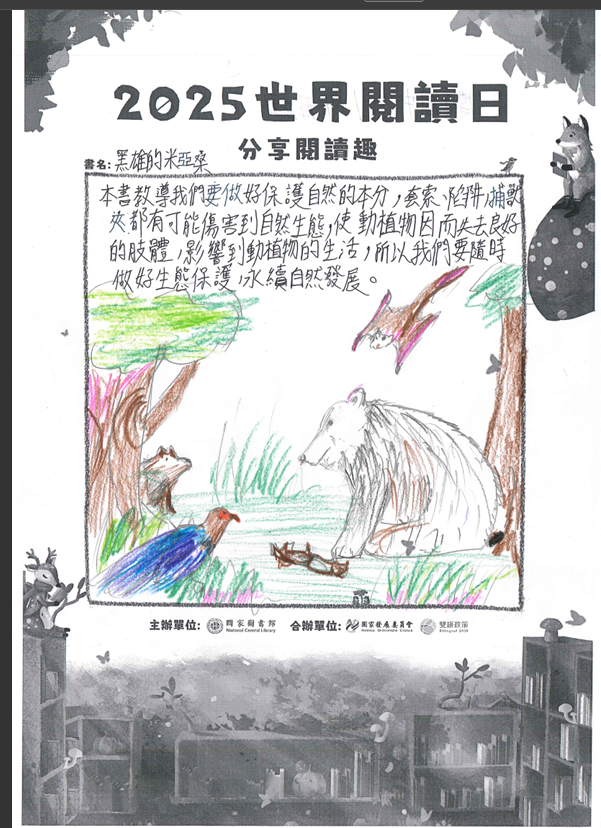 2025世界閱讀日
分享閱讀趣
書名：黑雄的米亞桑
本書教導我們要做好保護自然的本分，套索、陷阱、捕獸
夾都有可能傷害到自然生態，使動植物因而失去良好
的肢體，影響到動植物的生活，所以我們要隨時
做好生態保護，永續自然發展。
主辦單位： 國家圖書館 National Central Library 合辦單位： 國家發展委員會 National Development Council 雙語政策 Bilingual 2030